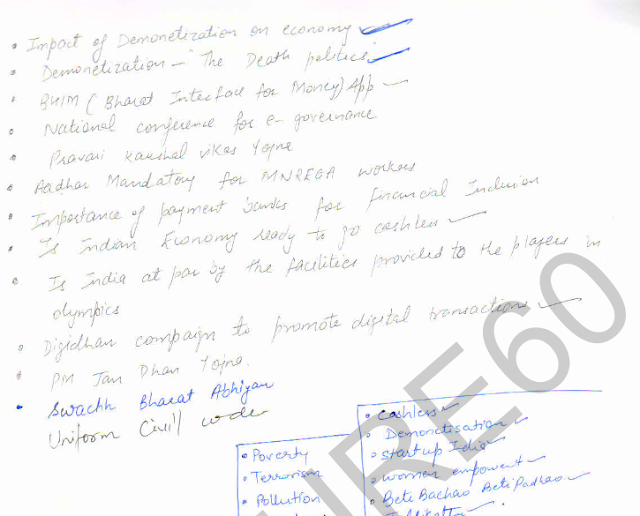 • Impact of Demonetization on economy
• Demonetization – The Death politics
• BHIM (Bharat Interface for Money) App –
• National conference for e-governance
• Pravari Kaushal vikas Yojna
• Aadhar Mandatory for MNREGA workers
• Importance of payment banks for financial Inclusion
• Is Indian Economy ready to go cashless
• Is India at par by the facilities provided to the players in
olympics
• Digidhan campaign to promote digital transactions
• PM Jan Dhan Yojna.
• Swachh Bharat Abhiyan
Uniform Civil code
• Poverty
• Terrorism
• Pollution
• Cashless
• Demonetisation
• Startup India
• women empowent
• Beti Bachao Beti Padhao
URE60